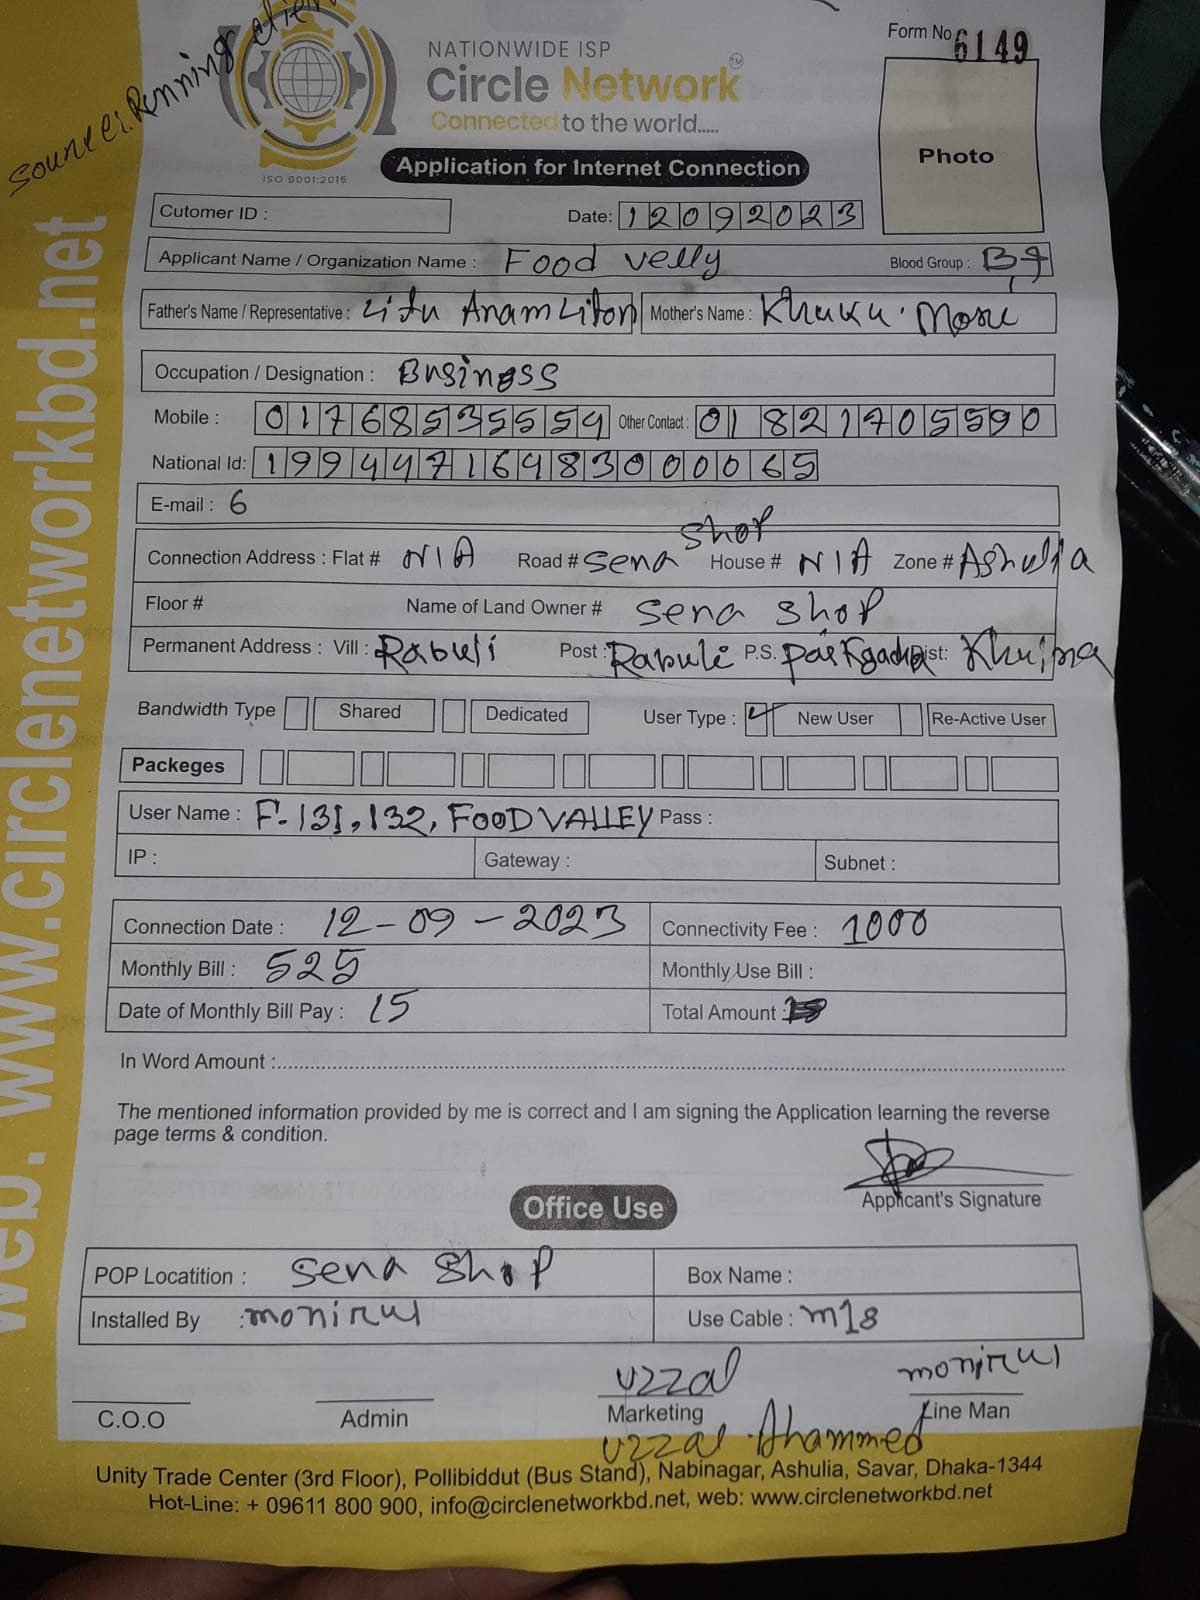 Source: Running client
NATIONWIDE ISP
Circle Network TM
Connected to the world.....
ISO 9001:2015
Form No 6149
Photo
Application for Internet Connection
Cutomer ID :
Date: 12092023
Applicant Name / Organization Name : Food velly Blood Group : B+
Father's Name / Representative : Litu Anam Liton Mother's Name : Khuku. Moni
Occupation / Designation : Business
Mobile : 01768535554 Other Contact : 01821705590
National Id: 19944716483000065
E-mail : 6
Connection Address : Flat # N/A Road # Sena Shop House # N/A Zone # Ashulia
Floor # Name of Land Owner # Sena shop
Permanent Address : Vill : Rabuli Post : Rabuli P.S. paikgacha Dist: Khulna
Bandwidth Type Shared Dedicated User Type : ✓ New User Re-Active User
Packeges
User Name : F-131,132, FOOD VALLEY Pass :
IP : Gateway : Subnet :
Connection Date : 12-09-2023 Connectivity Fee : 1000
Monthly Bill : 525 Monthly Use Bill :
Date of Monthly Bill Pay : 15 Total Amount :
In Word Amount :
The mentioned information provided by me is correct and I am signing the Application learning the reverse
page terms & condition.
Applicant's Signature
Office Use
POP Locatition : Sena Shop Box Name :
Installed By : monirul Use Cable : m18
uzzal monirul
C.O.O Admin Marketing Line Man
uzzal Ahammed
Unity Trade Center (3rd Floor), Pollibiddut (Bus Stand), Nabinagar, Ashulia, Savar, Dhaka-1344
Hot-Line: + 09611 800 900, info@circlenetworkbd.net, web: www.circlenetworkbd.net
web: www.circlenetworkbd.net